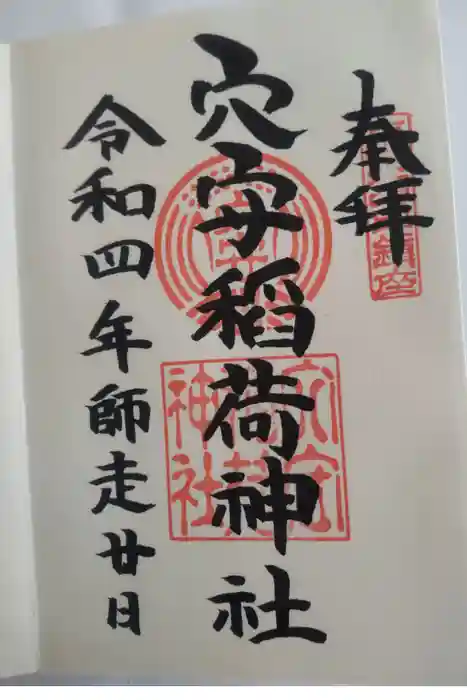 奉拝
鎮座
穴守稲荷神社
穴守
稲荷
神社
令和四年師走廿日